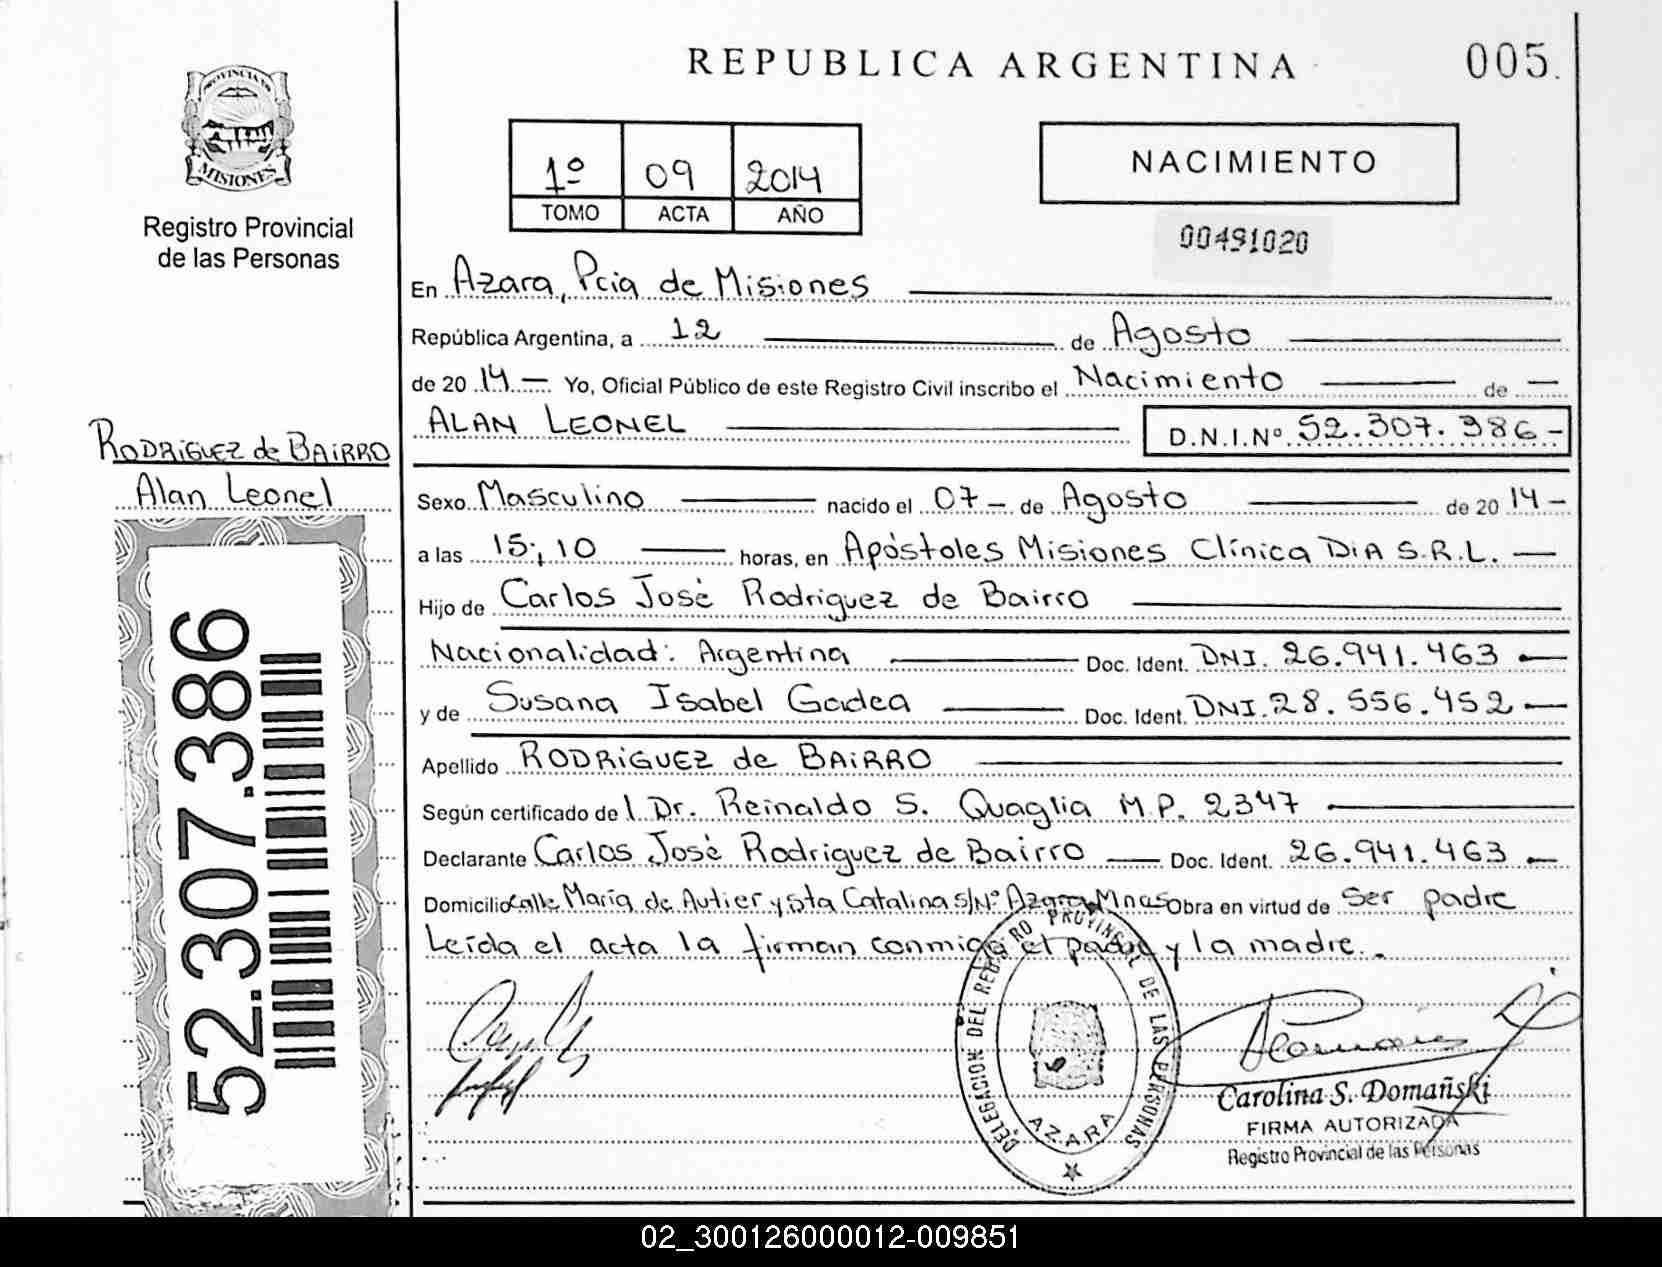 REPUBLICA ARGENTINA
005.
PROVINCIA DE
MISIONES
Registro Provincial
de las Personas
1º 09 2014
TOMO ACTA AÑO
NACIMIENTO
00491020
En Azara, Pcia de Misiones
República Argentina, a 12 de Agosto
de 20 14 Yo, Oficial Público de este Registro Civil inscribo el Nacimiento de
ALAN LEONEL D.N.I.Nº 52.307.386-
RODRIGUEZ de BAIRRO
Alan Leonel
52.307.386
Sexo Masculino nacido el 07 - de Agosto de 20 14 -
a las 15:10 horas, en Apóstoles Misiones Clínica DIA S.R.L.
Hijo de Carlos José Rodriguez de Bairro
Nacionalidad: Argentina Doc. Ident. DNI. 26.941.463
y de Susana Isabel Gadea Doc. Ident. DNI. 28.556.452
Apellido RODRIGUEZ de BAIRRO
Según certificado de l Dr. Reinaldo S. Quaglia M.P. 2347
Declarante Carlos José Rodriguez de Bairro Doc. Ident. 26.941.463
Domicilio calle María de Autier y Sta Catalina S/Nº Azara Mnas Obra en virtud de Ser padre
Leída el acta la firman conmigo el padre y la madre.
DELEGACION DEL REGISTRO PROVINCIAL DE LAS PERSONAS
AZARA
Carolina S. Domañski
FIRMA AUTORIZADA
Registro Provincial de las Personas
02_300126000012-009851